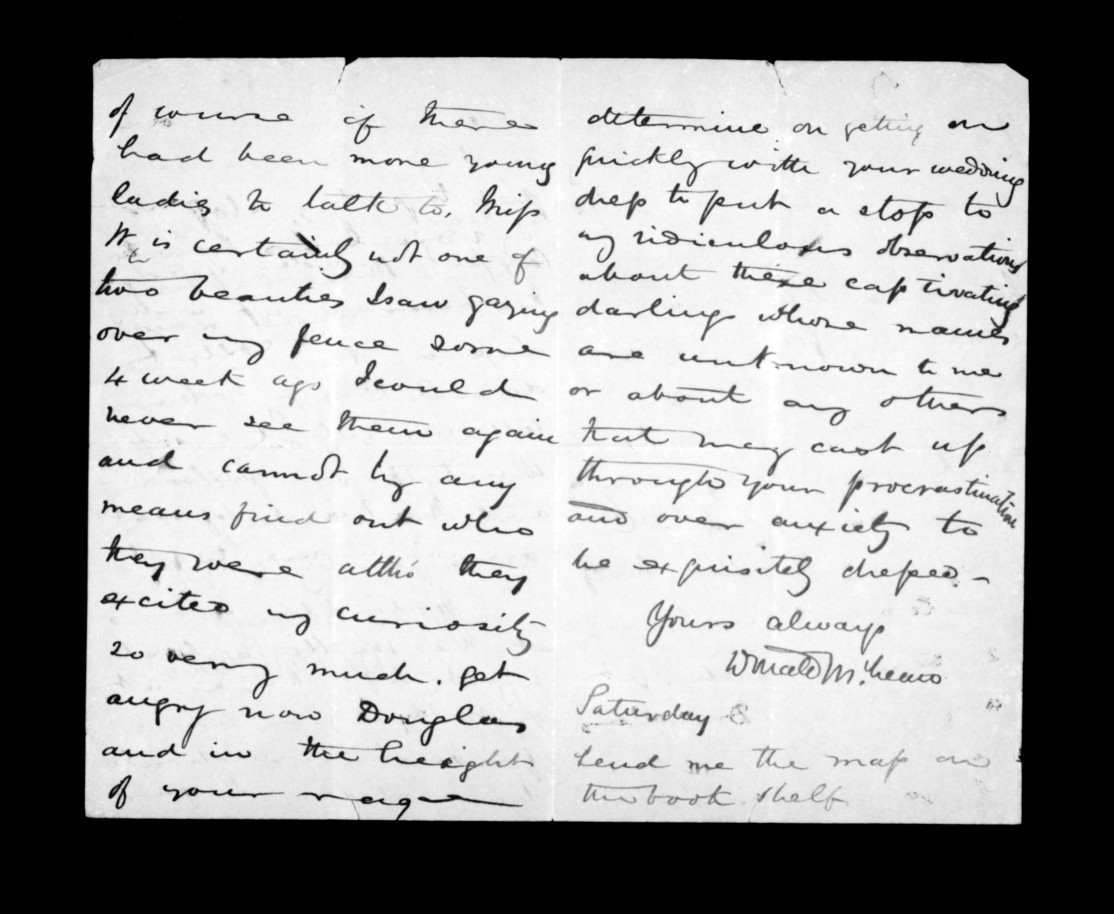 of course if there
had been more young
ladies to talk to. Miss
H is certainly not one of
two beauties I saw gazing
over my fence some
4 week ago I could
never see them again
and cannot by any
means find out who
they were altho' they
excited my curiosity
so very much. get
angry now Douglas
and in the height
of your rage
determine on getting on
quickly with your wedding
dress to put a stop to
my ridiculous observations
about these captivating
darlings whose names
are unknown to me
or about any others
that may cast up
through your procrastination
and over anxiety to
be exquisitely dressed. -
Yours always
Donald McLean
Saturday
Send me the map on
the book shelf